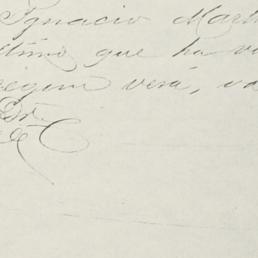 Ignacio Mart
ltimo que ha va
segun verá, va